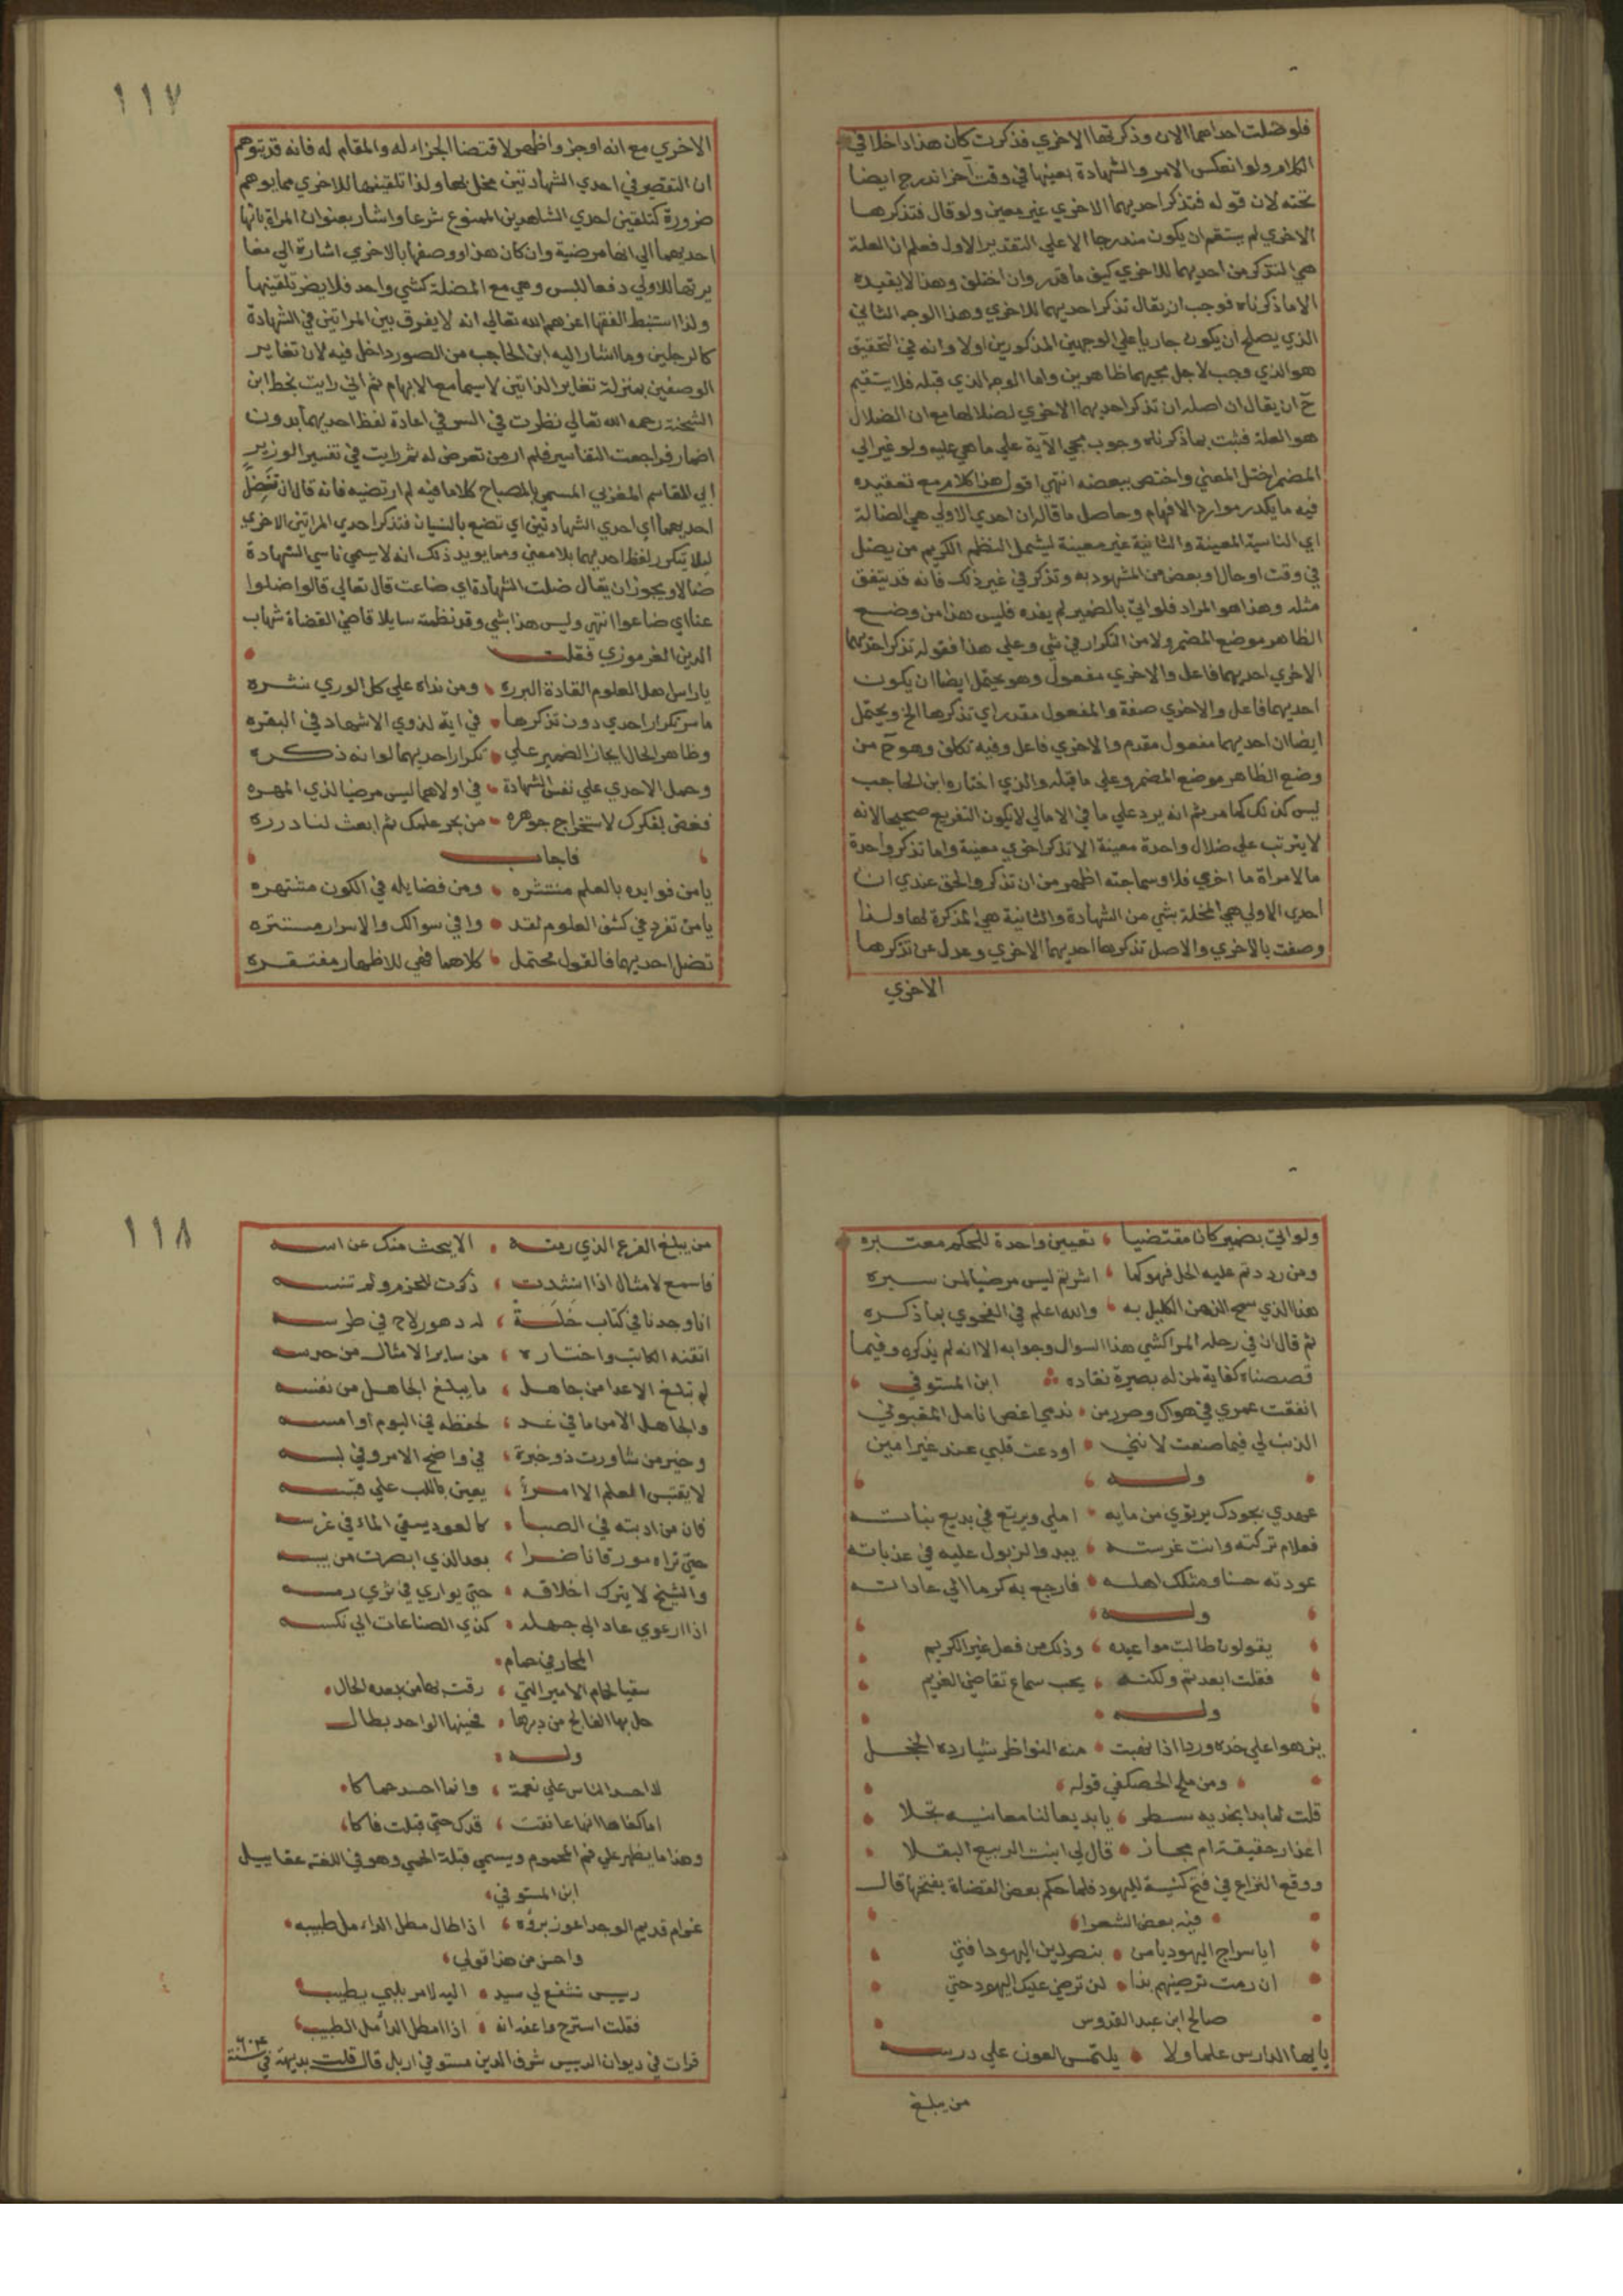 فلو ضلت احداهما الان وذكرتها الاخري فذكرت كان هذا داخلا في
الكلام ولو انعكس الامر والشهادة بعينها في وقت آخر اندرج ايضا
تحته لان قوله فتذكر احديهما الاخري غير معين ولو قال فتذكرها
الاخري لم يستقم ان يكون مندرجا الا علي التقدير الاول فعلم ان العلة
هي التذكر من احديهما للاخري كيف ما قدر وان اختلف وهذا لا يفيده
الا ما ذكرناه فوجب ان يقال تذكر احديهما للاخري وهذا الوجه الثاني
الذي يصلح ان يكون جاريا علي الوجهين المذكورين اولا وانه في التحقيق
هو الذي وجب لاجل مجيهما ظاهرين واما الوجه الذي قبله فلا يستقيم
ح ان يقال ان اصله ان تذكر احديهما الاخري لضلالها مع ان الضلال
هو العلة فثبت بما ذكرناه وجوب مجي الآية علي ما هي عليه ولو غير الي
المضمر اختل المعني واختص ببعضه انتهي اقول هذا كلام مع تعقيده
فيه ما يكدر موارد الافهام وحاصل ما قاله ان احدي الاولي هي الضالة
اي الناسية المعينة والثانية غير معينة ليشمل النظم الكريم من يضل
في وقت او حال او بعض من المشهود به وتذكر في غير ذلك فانه قد يتفق
مثله وهذا هو المراد فلو اتي بالضمير لم يفده فليس هذا من وضع
الظاهر موضع المضمر ولا من التكرار في شي وعلي هذا فقوله تذكر احديهما
الاخري احديهما فاعل والاخري مفعول وهو يحتمل ايضا ان يكون
احديهما فاعل والاخري صفة والمفعول مقدر اي تذكرها الخ ويحتمل
ايضا ان احديهما مفعول مقدم والاخري فاعل وفيه تكلف وهو ح من
وضع الظاهر موضع المضمر وعلي ما قبله والذي اختاره ابن الحاجب
ليس كذلك كما مر ثم انه يرد علي ما في الامالي لا يكون التفريع صحيحا لانه
لا يترتب علي ضلال واحدة معينة الا تذكر اخري معينة واما تذكر واحدة
ما لامراة ما اخري فلا وسماجته اظهر من ان تذكر والحق عندي ان
احدي الاولي هي المخلة بشي من الشهادة والثانية هي المذكرة لها ولذا
وصفت بالاخري والاصل تذكرها احديهما الاخري وعدل عن تذكرها
الاخري
١١٧
الاخري مع انه اوجز واظهر لاقتضا الجزاء له والمقام له فانه قد يتوهم
ان التقصير في احدي الشهادتين مخل بها ولذا تلقينها للاخري مما يوهم
ضرورة كتلقين احدي الشاهدين الممنوع شرعا واشار بعنوان المراة بانها
احديهما الي انها مرضية وان كان هذا ووصفها بالاخري اشارة الي مغا
يرتها للاولي دفعا للبس وهي مع المضلة كشي واحد فلا يضر تلقينها
ولذا استنبط الفقها اعزهم الله تعالي انه لا يفرق بين المراتين في الشهادة
كالرجلين وما اشار اليه ابن الحاجب من الصور داخل فيه لان تغاير
الوصفين بمنزلة تغاير الذاتين لا سيما مع الابهام ثم اني رايت بخط ابن
الشحنة رحمه الله تعالي نظرت في السر في اعادة لفظ احديهما بدون
اضمار فراجعت التفاسير فلم ار من تعرض له ثم رايت في تفسير الوزير
ابي القاسم المغربي المسمي بالمصباح كلاما فيه لم ارتضيه فانه قال ان تضل
احديهما اي احدي الشهادتين اي تضع بالنسيان فتذكر احدي المراتين الاخري
ليلا يتكرر لفظ احديهما بلا معني ومما يويد ذلك انه لا يسمي ناسي الشهادة
ضالا ويجوز ان يقال ضلت الشهادة اي ضاعت قال تعالي قالوا ضلوا
عنا اي ضاعوا انتهي وليس هذا بشي وقد نظمته سايلا قاضي القضاة شهاب
الدين الغرموزي فقلت
يا راس اهل العلوم القادة البرره ومن نداه علي كل الوري نشره
ما سر تكرار احدي دون تذكرها في اية لذوي الاشهاد في البقره
وظاهر الحال ايجاز الضمير علي تكرار احديهما لو انه ذكره
وحمل الاحدي علي نفس الشهادة في اولاهما ليس مرضيا لذي المهره
فغص بفكرك لاستخراج جوهره من بحر علمك ثم ابعث لنا درره
فاجاب
يا من فوايده بالعلم منتشره ومن فضايله في الكون مشتهره
يا من تفرد في كشف العلوم لقد وافي سوالك والاسرار مستتره
تضل احديهما فالقول محتمل كلاهما فهي للاظهار مفتقره
ولو اتي بضمير كان مقتضيا تعيين واحدة للحكم معتبره
ومن رددتم عليه الحل فهو كما اشرتم ليس مرضيا لمن سبره
هذا الذي سمح الذهن الكليل به والله اعلم في الفحوي بما ذكره
ثم قال ان في رحلة المراكشي هذا السوال وجوابه الا انه لم يذكره وفيما
قصصناه كفاية لمن له بصيرة نقاده ابن المستوفي
انفقت عمري في هواك وصرر من ندمي اغص انامل المغبون
الذنب لي فيما صنعت لانني اودعت قلبي عند غير امين
وله
عهدي بجودك يرتوي من مايه املي ويرتع في بديع نباته
فعلام تركته وانت غرسته يبدو الذبول عليه في عذباته
عودته حسنا ومثلك اهله فارجع به كرما الي عاداته
وله
يقولون طالت مواعيده وذلك من فعل غير الكريم
فقلت ابعدتم ولكنه يحب سماع تقاضي الغريم
وله
يزهو علي خده ورد اذا نهبت منه النواظر شيا رده الخجل
ومن ملح الحصكفي قوله
قلت لما بدا بخديه سطر يا بديعا لنا معانيه تجلا
اعذار حقيقة ام مجاز قال لي انبت الربيع البقلا
ووقع النزاع في فتح كنيسة لليهود فلما حكم بعض القضاة بفتحها قال
فيه بعض الشعرا
ايا سراج اليهود يا من بنصر دين اليهود افتي
ان رمت ترضيهم بذا لن ترضي عليك اليهود حتي
صالح ابن عبد القدوس
يا ايها الدارس علما ولا يلتمس العون علي درسه
من يبلغ
١١٨
من يبلغ الفرع الذي رمته الا ببحث منك عن اسه
فاسمع لامثال اذا انشدت ذكرت للحزم ولم تنسه
انا وجدنا في كتاب خلت له دهور لاح في طرسه
اتقنه الكاتب واختاره من ساير الامثال من حرسه
لم تبلغ الاعدا من جاهل ما يبلغ الجاهل من نفسه
والجاهل الامن ما في غد لحفظه في اليوم او امسه
وخير من شاورت ذو خبرة في واضح الامر وفي لبسه
لا يقتبس العلم الا امرأ يعين باللب علي قبسه
فان من ادبته في الصبا كالعود يسقي الماء في غرسه
حتي تراه مورقا ناضرا بعد الذي ابصرت من يبسه
والشيخ لا يترك اخلاقه حتي يواري في ثري رمسه
اذا ارعوي عاد الي جهله كذي الصناعات الي نكسه
المحار في حمام
سقيا لحمام الامير التي رقت لها من بعده الحال
حل بها الفالج من دبرها فحينها الواحد بطال
وله
لا احسد الناس علي نعمة وانما احسد حماكا
اما كفاها انها عانقت قدك حتي قبلت فاكا
وهذا ما يظهر علي فم المحموم ويسمي قبلة الحمي وهو في اللغة عقابيل
ابن المستوفي
غرام قديم الوجد اعوز برؤه اذا طال مطل الداء مل طبيبه
واحسن من هذا قولي
رييس تشفع لي سيد اليه لامر بلبي يطيب
فقلت استرح واعف انه اذا مطل الدا مل الطبيب
قرات في ديوان الرييس شرف الدين مستوفي اربل قال قلت بديهة في سنة ٦٠٤